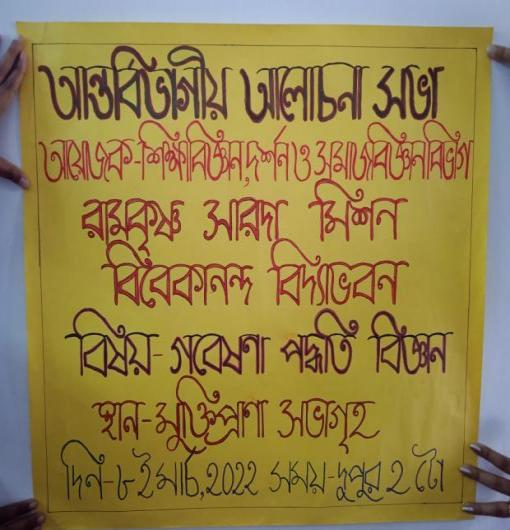 আন্তর্বিভাগীয় আলোচনা সভা
আয়োজক-শিক্ষাবিজ্ঞান, দর্শন ও সমাজবিজ্ঞান বিভাগ
রামকৃষ্ণ সারদা মিশন
বিবেকানন্দ বিদ্যাভবন
বিষয়-গবেষণা পদ্ধতি বিজ্ঞান
স্থান-মুক্তিপ্রাণা সভাগৃহ
দিন-৮ই মার্চ, 2022 সময়-দুপুর 2 টো